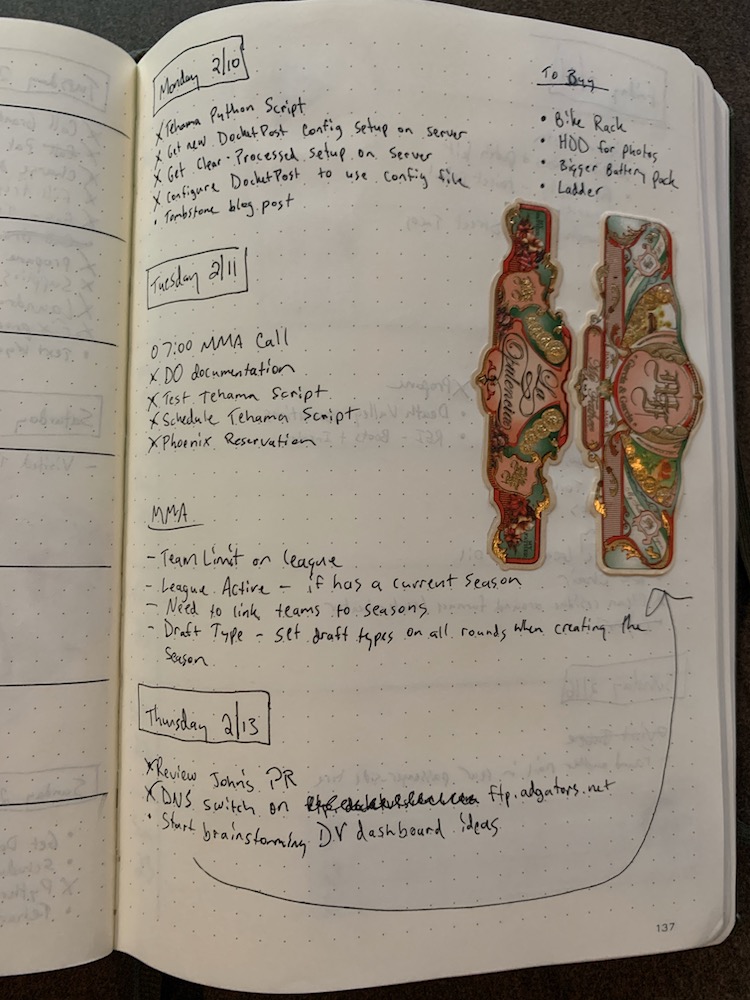 Monday 2/10
x Tehama Python Script
x Get new DocketPost Config setup on server
x Get Clear-Processed setup on server
x Configure DocketPost to use config file
• Tombstone blog post
To Buy
• Bike Rack
• HDD for photos
• Bigger Battery Pack
• Ladder
Tuesday 2/11
O 7:00 MMA Call
x DO documentation
x Test Tehama Script
x Schedule Tehama Script
x Phoenix Reservation
La
Opulencia
MMA
- Team Limit on league
- League Active - if has a current season
- Need to link teams to seasons
- Draft Type - set draft types on all rounds when creating the
season
Thursday 2/13
x Review John's PR
x DNS switch on ftp.adgators.net
• Start brainstorming DV dashboard ideas
137